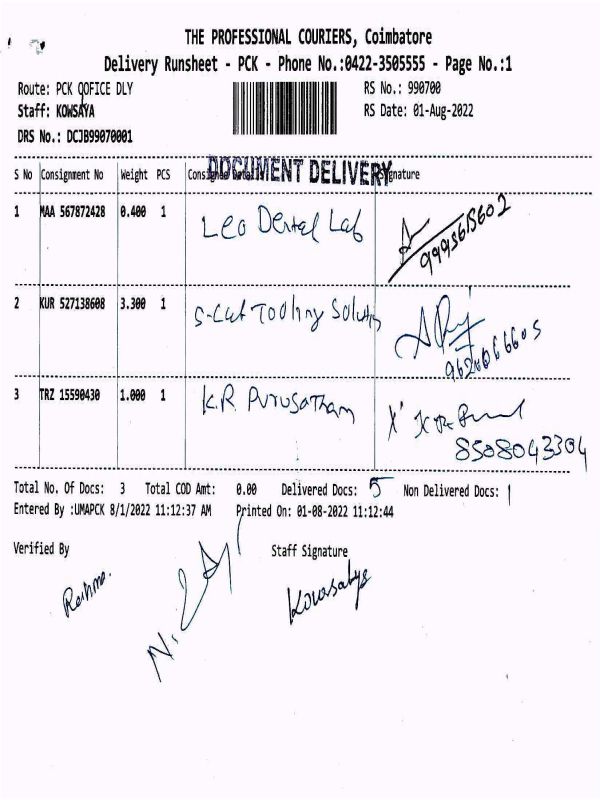 THE PROFESSIONAL COURIERS, Coimbatore
Delivery Runsheet - PCK - Phone No.:0422-3505555 - Page No.:1
Route: PCK OOFICE DLY
RS No.: 990700
Staff: KOWSAYA
RS Date: 01-Aug-2022
DRS No.: DCJB99070001
DOCUMENT DELIVERY
S No Consignment No Weight PCS Consignee Details Signature
1 MAA 567872428 0.400 1 Leo Dental Lab
9995615602
2 KUR 527138608 3.300 1 S-Cut Tooling Solution
3 TRZ 15590430 1.000 1 K.R. Purusatham
8508043304
Total No. Of Docs: 3 Total COD Amt: 0.00 Delivered Docs: 5 Non Delivered Docs: 1
Entered By :UMAPCK 8/1/2022 11:12:37 AM Printed On: 01-08-2022 11:12:44
Verified By Staff Signature